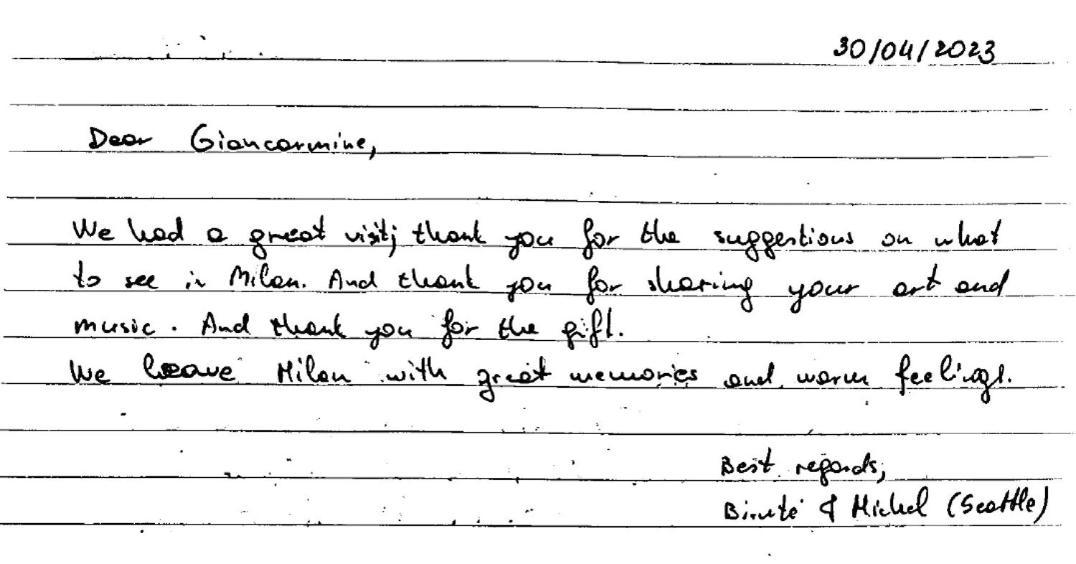 30/04/2023
Dear Giancarmine,
We had a great visit; thank you for the suggestions on what
to see in Milan. And thank you for sharing your art and
music. And thank you for the gift.
We leave Milan with great memories and warm feelings.
Best regards,
Birutė & Michel (Seattle)